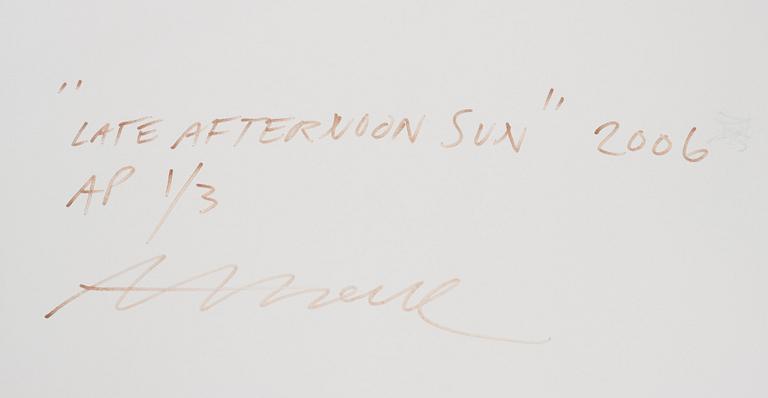 "LATE AFTERNOON SUN" 2006
AP 1/3